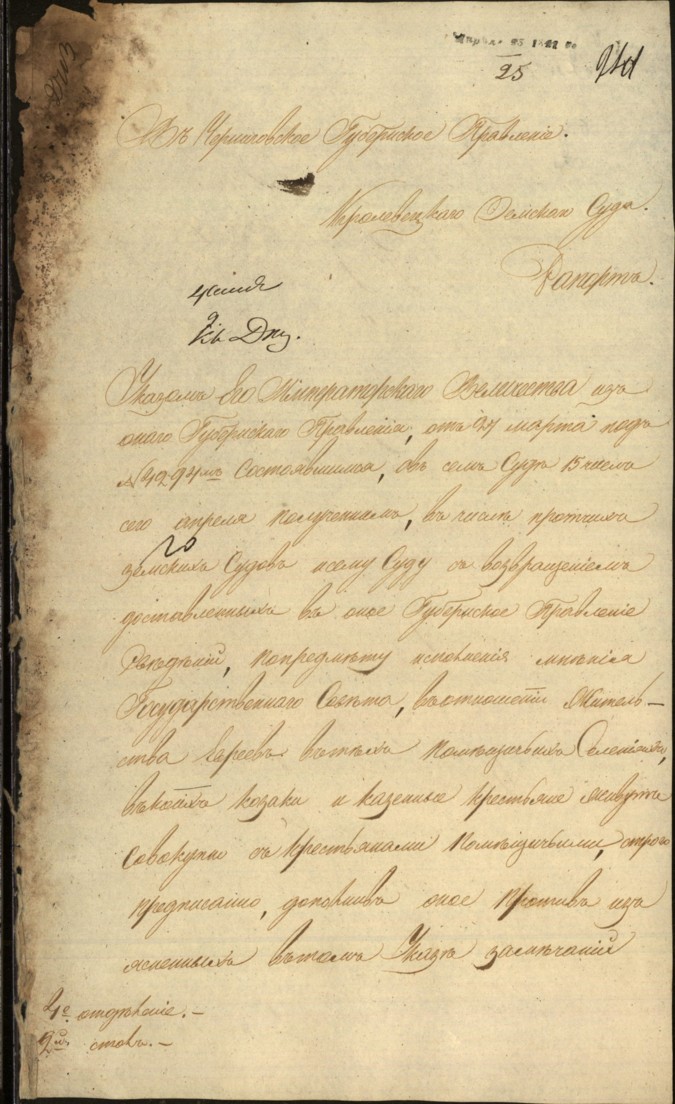 25
241
Въ Черниговское Губернское Правленіе.
Кролевецкаго Земскаго Суда.
Рапортъ.
Указомъ Его Императорскаго Величества изъ
онаго Губернскаго Правленія, отъ 27 марта подъ
№ 4294мъ состоявшимся, въ семъ Судѣ 15 числа
сего апреля полученнымъ, въ числѣ протчихъ
земскихъ Судовъ исему Суду съ возвращеніемъ
доставленныхъ въ оное Губернское Правленіе
Свѣдѣній, попредмѣту исполненія мнѣнія
Государственнаго Совѣта, въотношеніи Житель–
ства Евреевъ вътѣхъ помѣщичьихъ Селеніяхъ,
въкоихъ козаки и казенные крестьяне живутъ
совокупно съ крестьянами помѣщичьими, строго
предписанно, дополнивъ оное противъ изъ
ясненныхъ вътомъ Указѣ замѣчаній
отдѣленіе. –
2й столъ. –